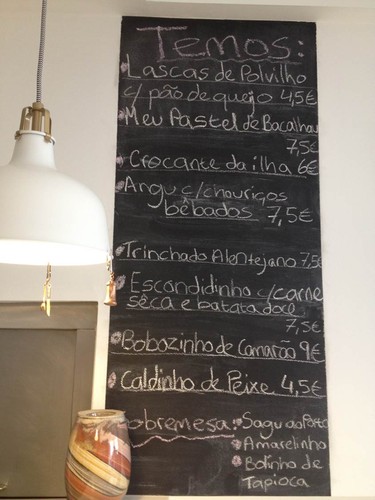 Temos:
Lascas de Polvilho
c/ pão de queijo 4,5€
Meu Pastel de Bacalhau
7,5€
Crocante da ilha 6€
Angu c/chouriços
bêbados 7,5€
Trinchado Alentejano 7,5€
Escondidinho c/carne
sêca e batata doce
7,5€
Bobozinho de Camarão 9€
Caldinho de Peixe 4,5€
Sobremesa: Sagu ao Porto
Amarelinho
Bolinho de
Tapioca